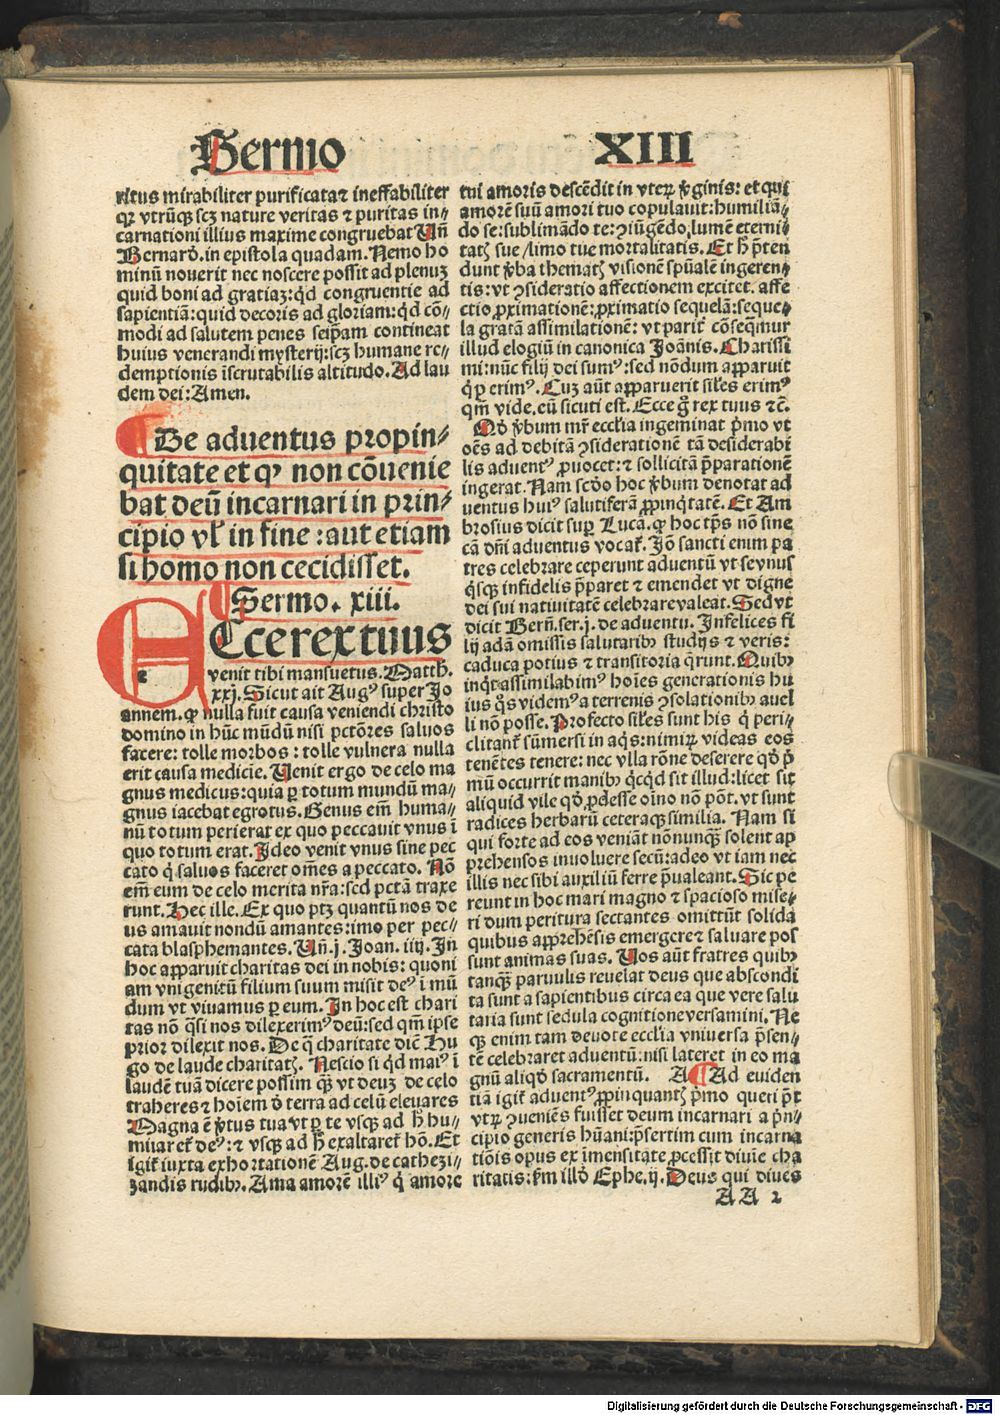 Sermo XIII
ritus mirabiliter purificata⁊ ineffabiliter
qꝛ vtrūqꝫ scꝫ nature veritas ⁊ puritas in⸗
carnationi illius maxime congruebat Un̄
Bernard̄. in epistola quadam. Nemo ho
minū nouerit nec noscere possit ad plenuꝫ
quid boni ad gratiaꝫ: qd̄ congruentie ad
sapientiā: quid decoris ad gloriam: qd̄ cō⸗
modi ad salutem penes seip̄am contineat
huius venerandi mysterij: scꝫ humane re⸗
demptionis īscrutabilis altitudo. Ad lau
dem dei: Amen.
¶ De aduentus propin⸗
quitate et ꝙ non cōuenie
bat deū incarnari in prin⸗
cipio vl̓ in fine: aut etiam
si homo non cecidisset.
¶ Sermo. xiii.
ECce rex tuus
venit tibi mansuetus. Matth.
xxj. Sicut ait Augꝰ super Jo
annem. ꝙ nulla fuit causa veniendi christo
domino in hūc mūdū nisi pctōres saluos
facere: tolle morbos: tolle vulnera nulla
erit causa medicie. Uenit ergo de celo ma
gnus medicus: quia ꝑ totum mundū ma⸗
gnus iacebat egrotus. Genus em̄ huma⸗
nū totum perierat ex quo peccauit vnus ī
quo totum erat. Ideo venit vnus sine pec
cato q̄ saluos faceret om̄es a peccato. Nō
em̄ eum de celo merita nr̄a: sed pctā traxe
runt. Hec ille. Ex quo ptꝫ quantū nos de
us amauit nondū amantes: imo per pec⸗
cata blasphemantes. Un̄. j. Joan. iiij. In
hoc apparuit charitas dei in nobis: quoni
am vnigenitū filium suum misit deꝰ ī mū
dum vt viuamus ꝑ eum. In hoc est chari
tas nō q̄si nos dilexerimꝰ deū: sed qm̄ ipse
prior dilexit nos. De q̄ charitate dic̄ Hu
go de laude charitatꝭ. Nescio si qd̄ maiꝰ ī
laudē tuā dicere possim qꝫ vt deuꝫ de celo
traheres ⁊ hoīem d̄ terra ad celū eleuares
Magna ē v̓tus tua vt ꝑ te vsqꝫ ad h̄ hu⸗
miliaret̄ deꝰ: ⁊ vsqꝫ ad h̄ exaltaret̄ hō. Et
igit̄ iuxta exhortationē Aug. de cathezi⸗
zandis rudibꝰ. Ama amorē illiꝰ q̄ amore
tui amoris descēdit in vterū v̓ginis: et qui
amorē suū amori tuo copulauit: humiliā⸗
do se: sublimādo te: ꝯiūgēdo lumē eterni⸗
tatꝭ sue/limo tue mortalitatis. Et h̄ p̄ten
dunt v̓ba thematꝭ visionē spūalē ingeren⸗
tis: vt ꝯsideratio affectionem excitet. affe
ctio ꝓximationē: ꝓximatio sequelā: seque⸗
la gratā assimilationē: vt parit̄ cōseqmur
illud elogiū in canonica Joānis. Charissi
mi: nūc filij dei sumꝰ: sed nōdum apparuit
qd̄ erimꝰ. Cuꝫ aūt apparuerit siles erimꝰ
qm̄ vide. eū sicuti est. Ecce g̊ rex tuus ⁊c̄.
Qd̄ v̓bum mr̄ ecclīa ingeminat p̄mo vt
oēs ad debitā ꝯsiderationē tā desiderabi
lis aduentꝰ ꝓuocet: ⁊ sollicitā p̄parationē
ingerat. Nam scd̄o hoc v̓bum denotat ad
uentus huiꝰ salutiferā ꝓpinqtatē. Et Am
brosius dicit suꝑ Lucā. ꝙ hoc tp̄s nō sine
cā dn̄i aduentus vocat̄. Jō sancti enim pa
tres celebrare ceperunt aduentū vt seynus
qsqꝫ infidelis p̄paret ⁊ emendet vt digne
dei sui natiuitatē celebrare valeat. Sed vt
dicit Bern̄. ser. j. de aduentu. Infelices fi
lij adā omissis salutaribꝰ studijs ⁊ veris:
caduca potius ⁊ transitoria q̄runt. Quibꝰ
inqt assimilabimꝰ hoīes generationis hu
ius qs videmꝰ a terrenis ꝯsolationibꝰ auel
li nō posse. Profecto siles sunt his q̄ peri⸗
clitant̄ sūmersi in aqs: nimirū videas eos
tenētes tenere: nec vlla rōne deserere qd̄ p̄
mū occurrit manibꝰ qcqd sit illud: licet sit
aliquid vile qd̄ ꝓdesse oīno nō pōt. vt sunt
radices herbarū ceteraqꝫ similia. Nam si
qui forte ad eos veniāt nōnunqꝫ solent ap
prehensos inuoluere secū: adeo vt iam nec
illis nec sibi auxiliū ferre p̄ualeant. Sic pe
reunt in hoc mari magno ⁊ spacioso mise⸗
ri dum peritura sectantes omittūt solida
quibus appręhēsis emergere⁊ saluare pos
sunt animas suas. Uos aūt fratres quibꝰ
tanqꝫ paruulis reuelat deus que abscondi
ta sunt a sapientibus circa ea que vere salu
taria sunt sedula cognitione versamini. Ne
qꝫ enim tam deuote ecclīa vniuersa p̄sen⸗
tē celebraret aduentū: nisi lateret in eo ma
gnū aliqd̄ sacramentū. A ¶ Ad euiden
tiā igit̄ aduentꝰ ꝓpinquantꝭ p̄mo queri p̄t
vtrꝝ ꝯueniēs fuisset deum incarnari a p̄n⸗
cipio generis hūani: p̄sertim cum incarna
tiōis opus ex īmensitate ꝓcessit diuie cha
ritatis: s̓m illd̄ Ephe. ij. Deus qui diues
AA 2
Digitalisierung gefördert durch die Deutsche Forschungsgemeinschaft - DFG